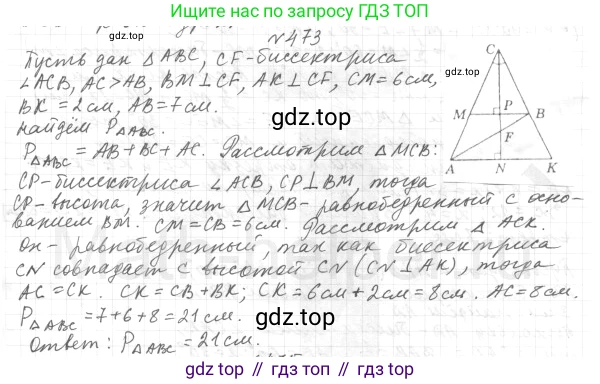 Ищите нас по запросу ГДЗ ТОП
№473
Пусть дан △ABC, CF-биссектриса
∠ACB, AC>AB, BM⊥CF, AK⊥CF, CM=6см,
BK=2см, AB=7см.
найдём P△ABC.
P△ABC=AB+BC+AC. Рассмотрим △MCB:
CP-биссектриса ∠ACB, CP⊥BM, тогда
CP-высота, значит △MCB-равнобедренный с осно-
ванием BM. CM=CB=6см. Рассмотрим △ ACK.
Он-равнобедренный, так как биссектриса
CN совпадает с высотой CN (CN⊥AK), тогда
AC=CK. CK=CB+BK; CK=6см+2см=8см. AC=8см.
P△ABC=7+6+8=21см.
Ответ: P△ABC=21см.
C
M
P
B
F
A
N
K
gdz.top
gdz.top
gdz.top
gdz.top // gdz.top // gdz.top